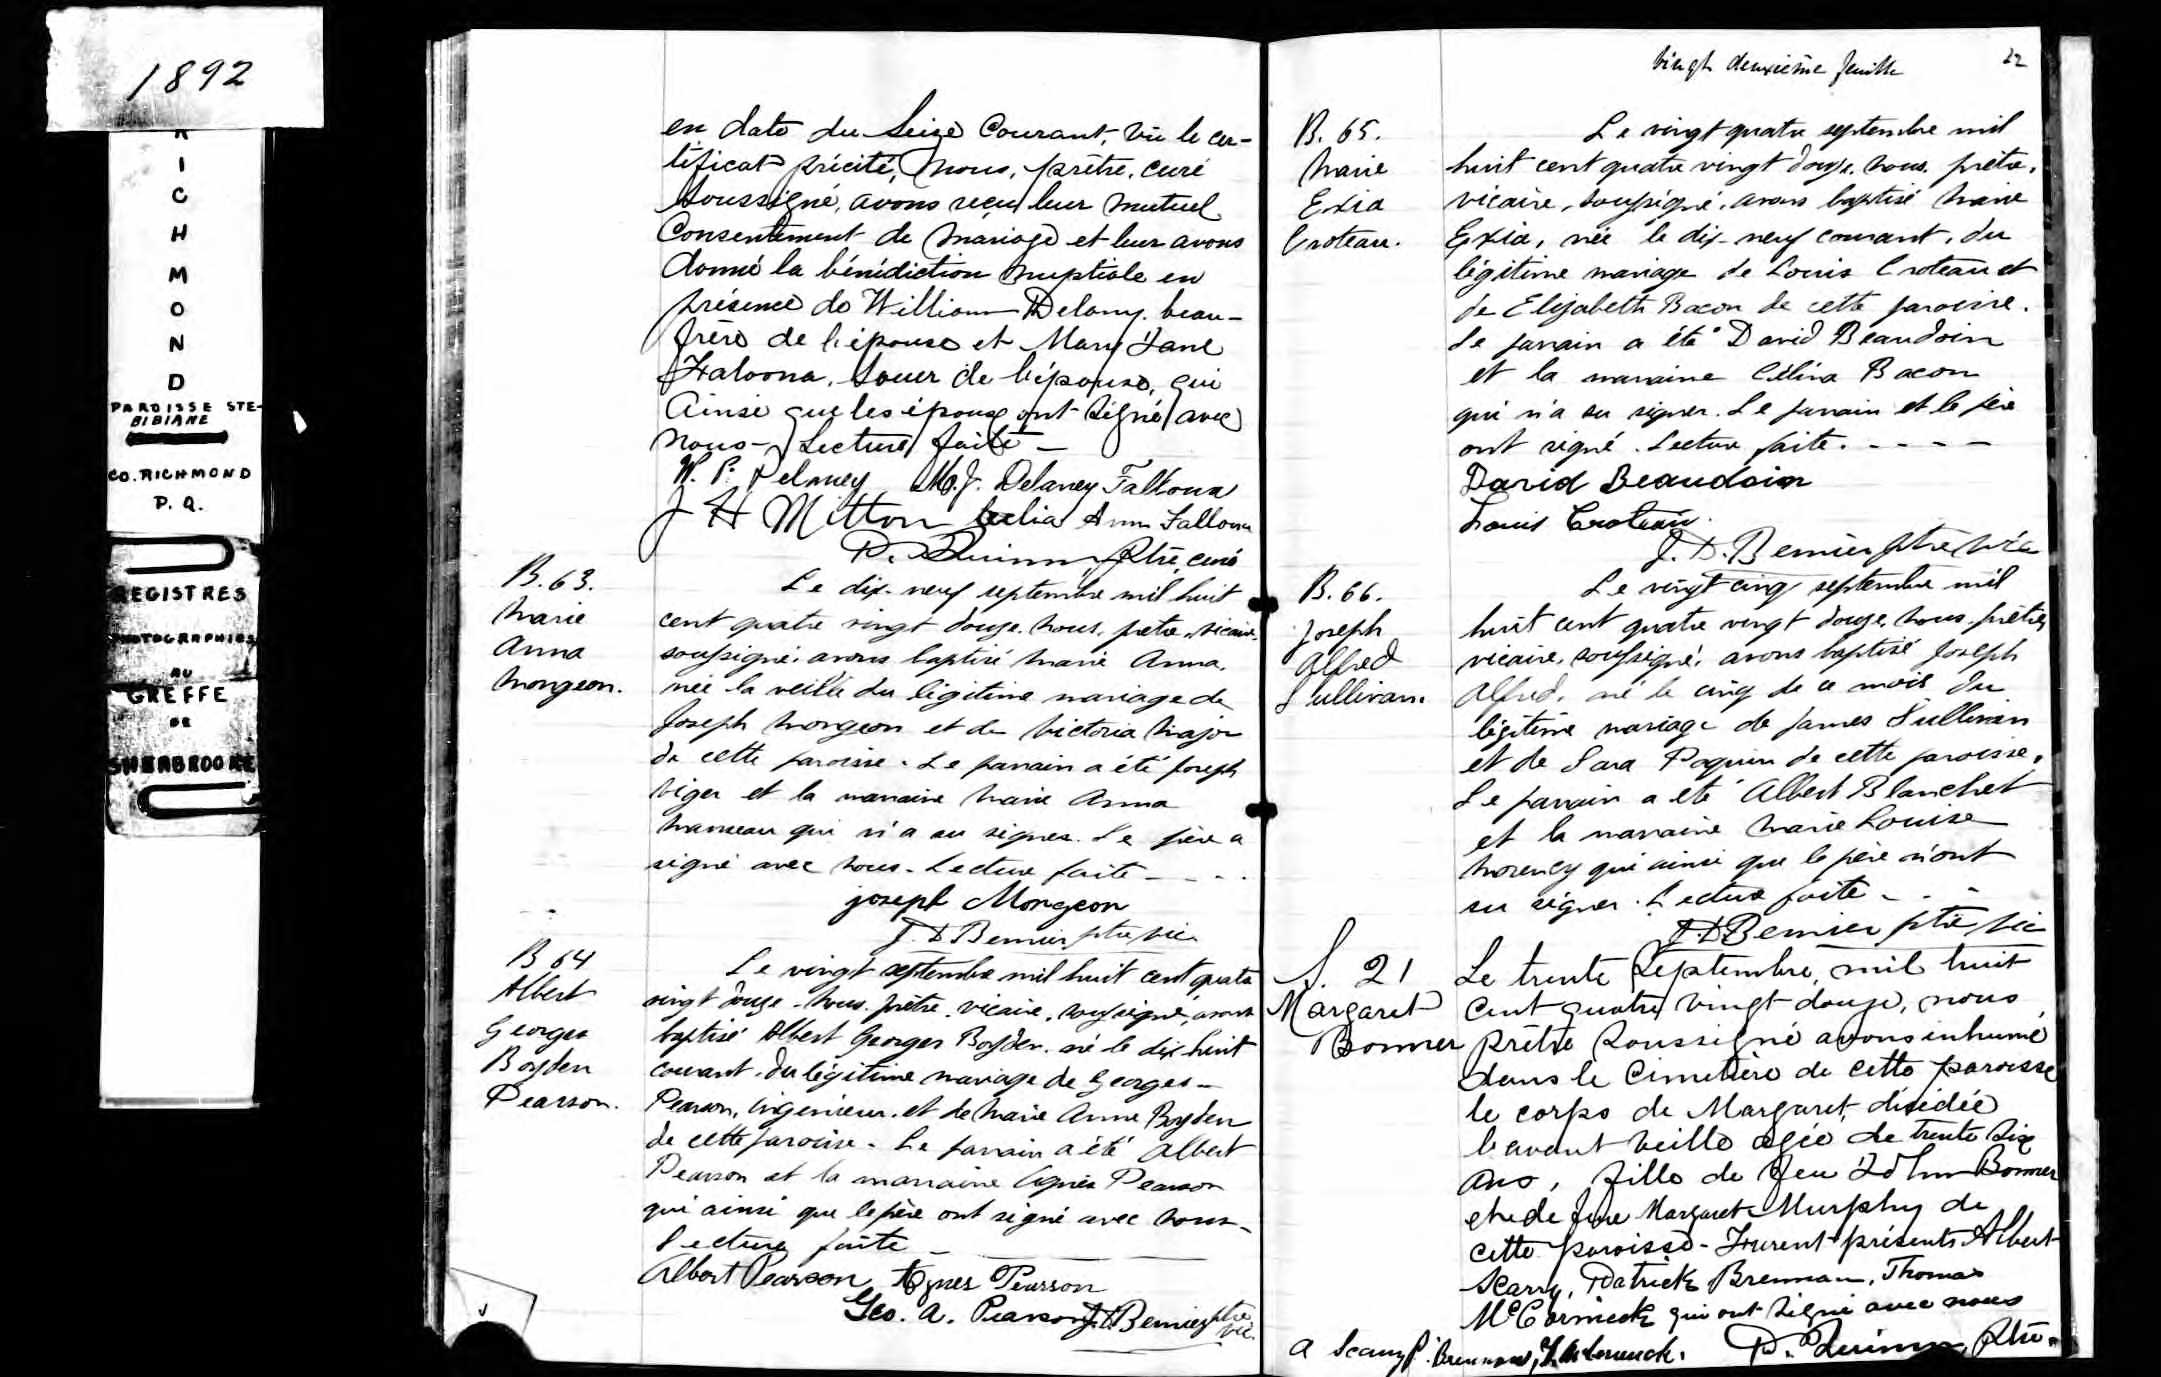 1892
R
I
C
H
M
O
N
D
PAROISSE STE-
BIBIANE
CO. RICHMOND
P. Q.
REGISTRES
PHOTOGRAPHIES
AU
GREFFE
DE
SHERBROOKE
en date du Seize Courant, Vu le cer-
tificat précité, Nous, prêtre, curé
Soussigné, avons reçu leur mutuel
Consentement de Mariage et leur avons
donné la bénédiction nuptiale en
présence de William Delany, beau-
frère de l'épouse et Mary Jane
Faloona, Soeur de l'épouse, qui
Ainsi que les époux ont Signé avec
nous - Lecture faite -
W. P. Delaney M. J. Delaney Falloona
J H Mitton Julia Ann Falloona
P. Quinn, Ptre, curé
B. 63.
Marie
Anna
Mongeon.
Le dix-neuf septembre mil huit
cent quatre vingt douze, nous, prêtre, vicaire,
soussigné, avons baptisé Marie Anna,
née la veille du légitime mariage de
Joseph Mongeon et de Victoria Major
de cette paroisse. Le parrain a été Joseph
Viger et la marraine Marie Anna
qui n'a su signer. Le père a
signé avec nous. Lecture faite - - - -
joseph Mongeon
J. D Bernier ptre vic
B 64
Albert
Georges
Boyden
Pearson.
Le vingt septembre mil huit cent quatre
vingt douze, nous, prêtre, vicaire, soussigné, avons
baptisé Albert Georges Boyden, né le dix huit
courant, du légitime mariage de Georges -
Pearson, ingénieur, et de Marie Anne Boyden
de cette paroisse. Le parrain a été Albert
Pearson et la marraine Agnès Pearson
qui ainsi que le père ont signé avec nous -
Lecture faite -
Albert Pearson Agnes Pearson
Geo. A. Pearson J. D. Bernier ptre
vic.
vingt deuxième feuille 22
B. 65.
Marie
Exia
Croteau.
Le vingt quatre septembre mil
huit cent quatre vingt douze, nous, prêtre,
vicaire, soussigné, avons baptisé Marie
Exia, née le dix-neuf courant, du
légitime mariage de Louis Croteau et
de Elizabeth Bacon de cette paroisse.
Le parrain a été David Beaudoin
et la marraine Célina Bacon
qui n'a su signer. Le parrain et le père
ont signé. Lecture faite. - - - -
David Beaudoin
Louis Croteau.
J. D. Bernier ptre vic
B. 66.
Joseph
Alfred
Sullivan.
Le vingt cinq septembre mil
huit cent quatre vingt douze, nous, prêtre,
vicaire, soussigné, avons baptisé Joseph
Alfred, né le cinq de ce mois du
légitime mariage de James Sullivan
et de Sara Paquin de cette paroisse.
Le parrain a été Albert Blanchet
et la marraine Marie Louise
Morency qui ainsi que le père n'ont
su signer. Lecture faite - - -
J. D. Bernier ptre vic
S. 21
Margaret
Bonner
Le trente Septembre, mil huit
cent quatre vingt douze, nous
prêtre Soussigné avons inhumé
dans le Cimetière de cette paroisse
le corps de Margaret, décédée
l'avant veille agée de trente six
ans, fille de feu John Bonner
et de feue Margaret Murphy de
cette paroisse - Furent présents Albert
Scarry, Patrick Brennan, Thomas
McCormick qui ont Signé avec nous
A Scarry P. Brennan, T. McCormick. P. Quinn, Ptre.